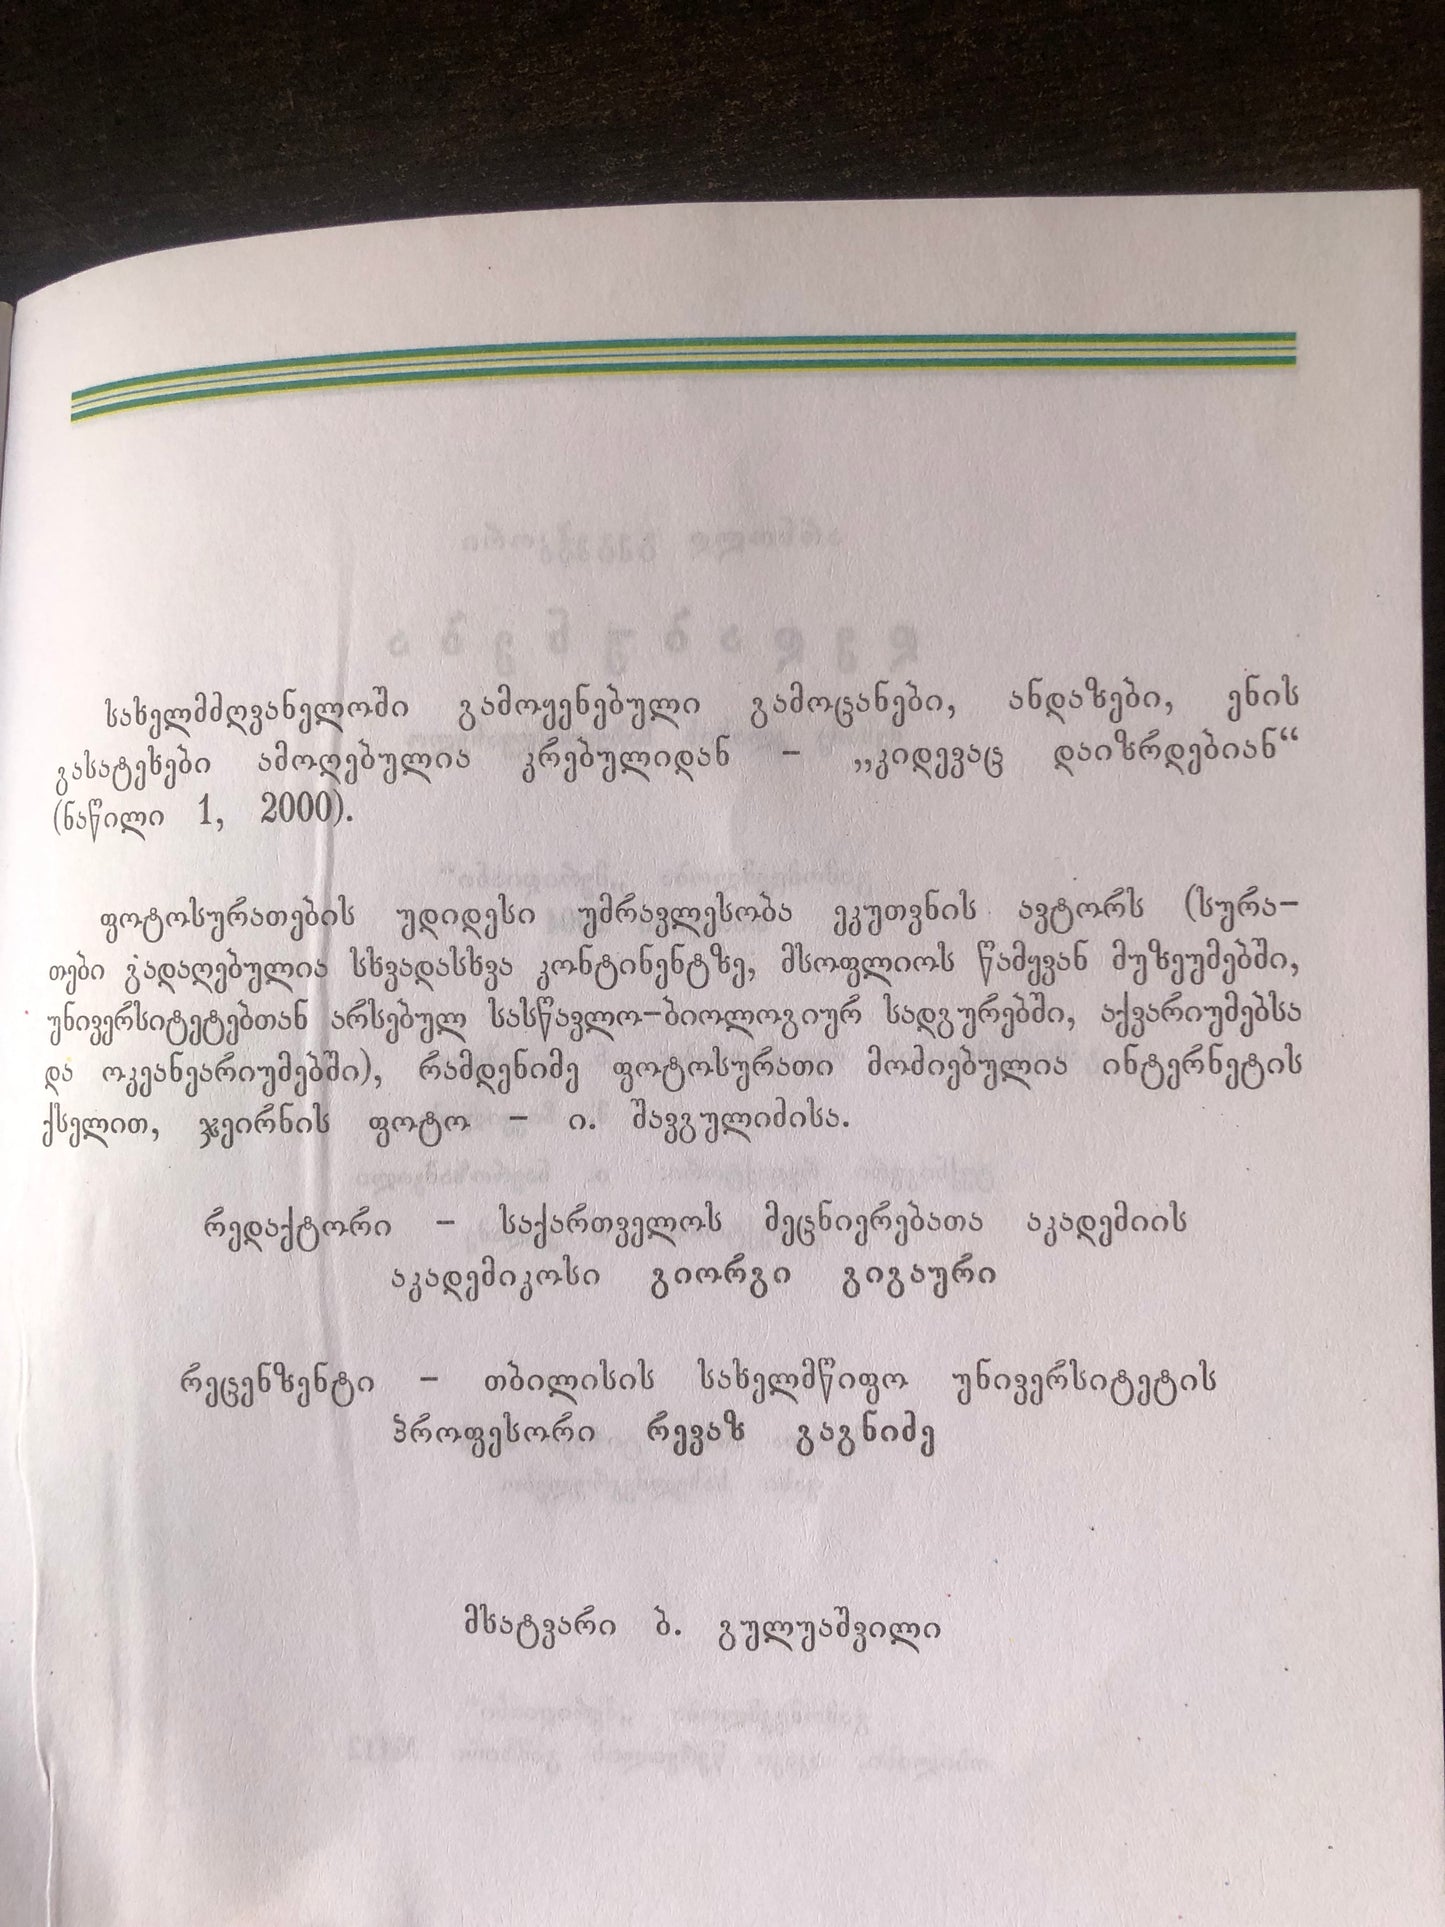 სახელმძღვანელოში გამოყენებული გამოცანები, ანდაზები, ენის
გასატეხები ამოღებულია კრებულიდან – „კიდევაც დაიზრდებიან“
(ნაწილი 1, 2000).
ფოტოსურათების უდიდესი უმრავლესობა ეკუთვნის ავტორს (სურა–
თები გადაღებულია სხვადასხვა კონტინენტზე, მსოფლიოს წამყვან მუზეუმებში,
უნივერსიტეტებთან არსებულ სასწავლო–ბიოლოგიურ სადგურებში, აქვარიუმებსა
და ოკეანეარიუმებში), რამდენიმე ფოტოსურათი მოძიებულია ინტერნეტის
ქსელით, ჯეირნის ფოტო – ი. შავგულიძისა.
რედაქტორი – საქართველოს მეცნიერებათა აკადემიის
აკადემიკოსი გიორგი გიგაური
რეცენზენტი – თბილისის სახელმწიფო უნივერსიტეტის
პროფესორი რევაზ გაგნიძე
მხატვარი ბ. გულუაშვილი